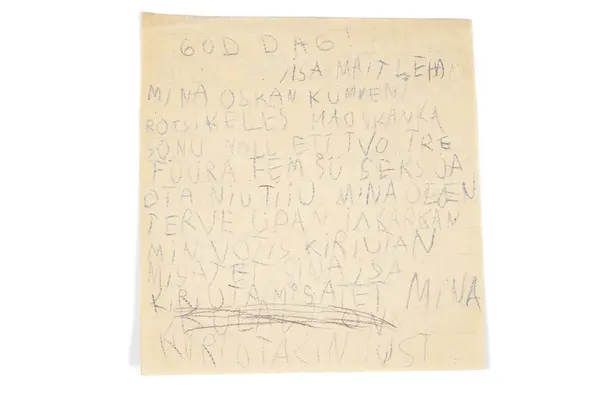 GOD DAG!
ISA MAIT LEHA
MINA OSKAN KUMMENI
ROTSIKELES MAOSKANKA
SONU NOLL ETT TVO TRE
FÜÜRA FEM SÜ SEKS JA
OTA NIU TIIU MINA OLEN
TERVE ÜPAN JAKARKAN
MIN VOTIS KIRIUIAN
MISATET SINA ISA
KIRIUTA MISATET MINA
KIRIUTASIN UST